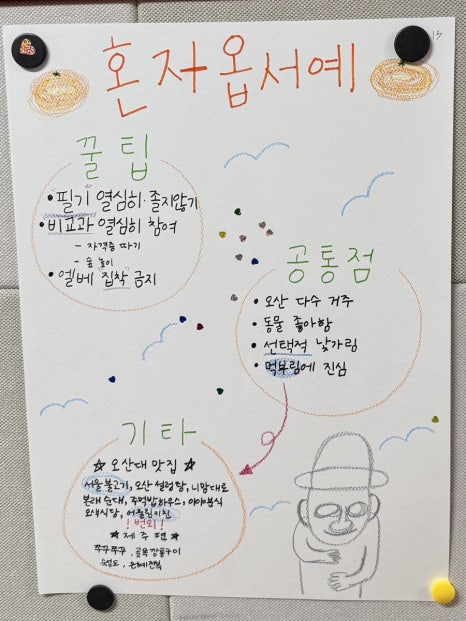 혼자옵서예
꿀팁
• 필기 열심히·졸지않기
• 비교과 열심히 참여
- 자격증 따기
- 숨 놀이
• 엘베 집착 금지
공통점
• 오산 다수 거주
• 동물 좋아함
• 선택적 낯가림
• 먹부림에 진심
기타
☆ 오산대 맛집 ☆
서울불고기, 오산 설렁탕, 니맘대로
본래순대, 주먹밥하우스, 아야분식
오색식당, 어울림키친
! 번외 !
★ 제주편 ★
쭈구쭈구, 골목
숙성도, 은혜전복